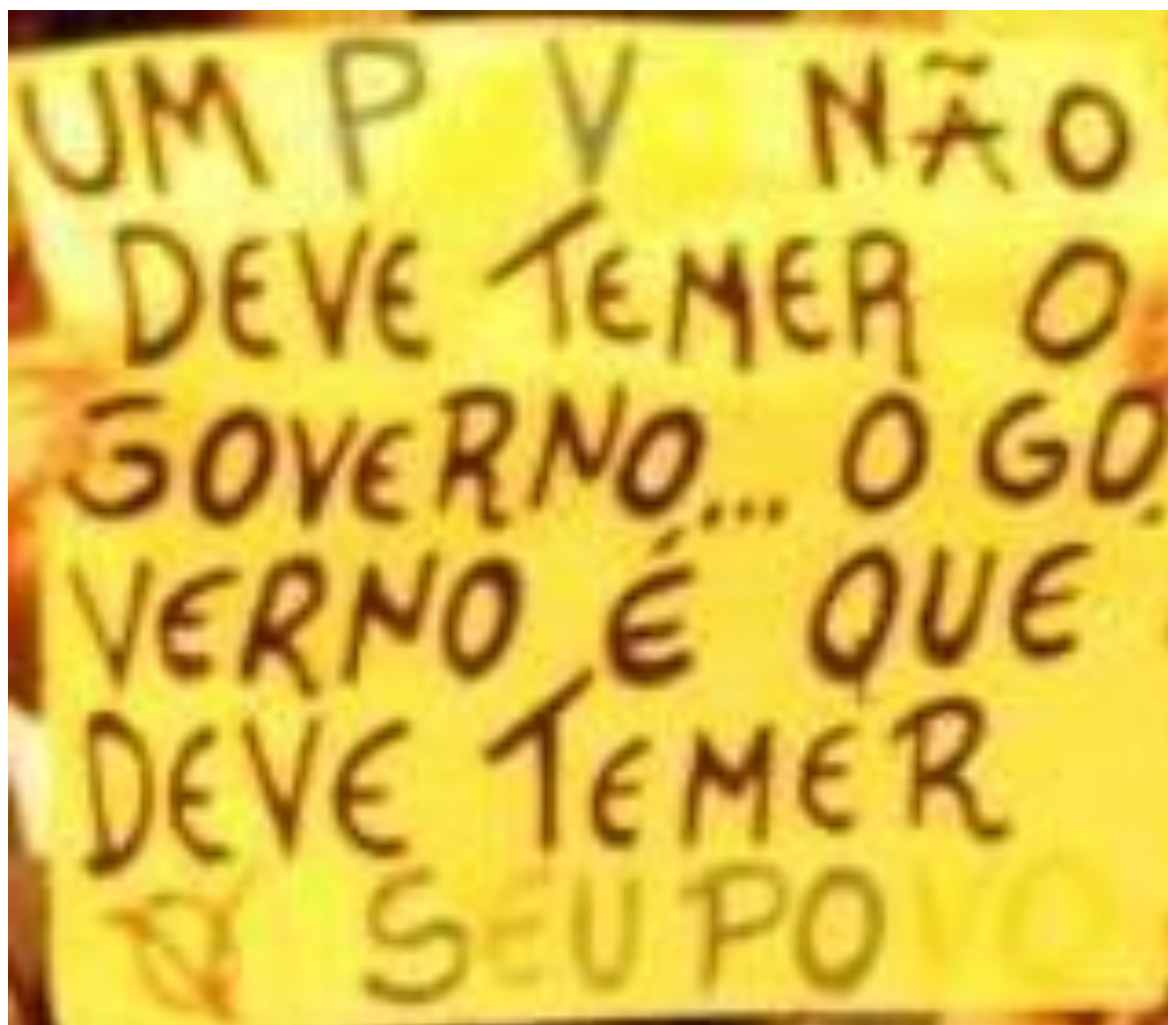 UM P V NÃO
DEVE TEMER O
GOVERNO... O GO.
VERNO É QUE
DEVE TEMER
SEU POVO